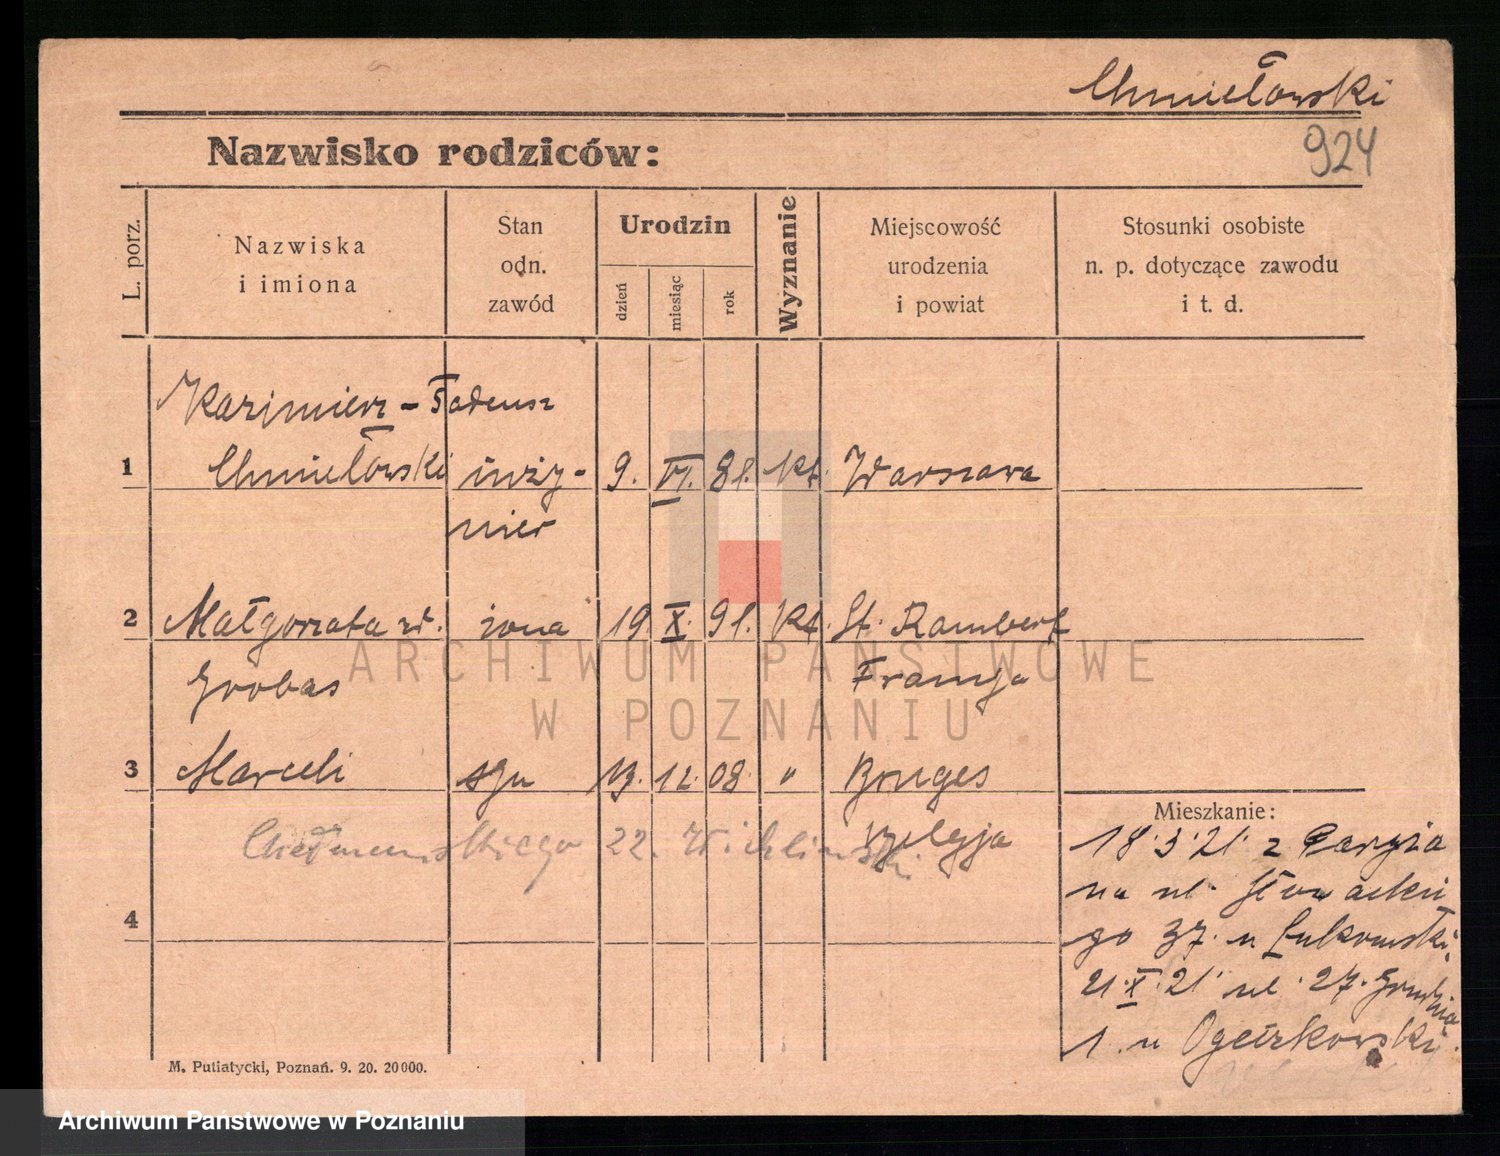 Chmielowski
924
Nazwisko rodziców:
L. porz.
Nazwiska
i imiona
Stan
odn.
zawód
Urodzin
dzień
miesiąc
rok
Wyznanie
Miejscowość
urodzenia
i powiat
Stosunki osobiste
n. p. dotyczące zawodu
i t. d.
Kazimierz - Tadeusz
1 Chmielowski inży- 9. VI. 81. kt. Warszawa
nier
2 Małgorzata żona 19 X. 91. kt. St. Rambert
Grobas Francja
3 Marceli syn 13. 12. 08. " Bruges
22. Belgja
Mieszkanie:
18.3.21. z Paryża
na ul. Słowackie
go 37. u Łukowski.
21.X.21. ul. 27. Grudnia
1. u
4
M. Putiatycki, Poznań. 9. 20. 20000.
ARCHIWUM PAŃSTWOWE
W POZNANIU
Archiwum Państwowe w Poznaniu